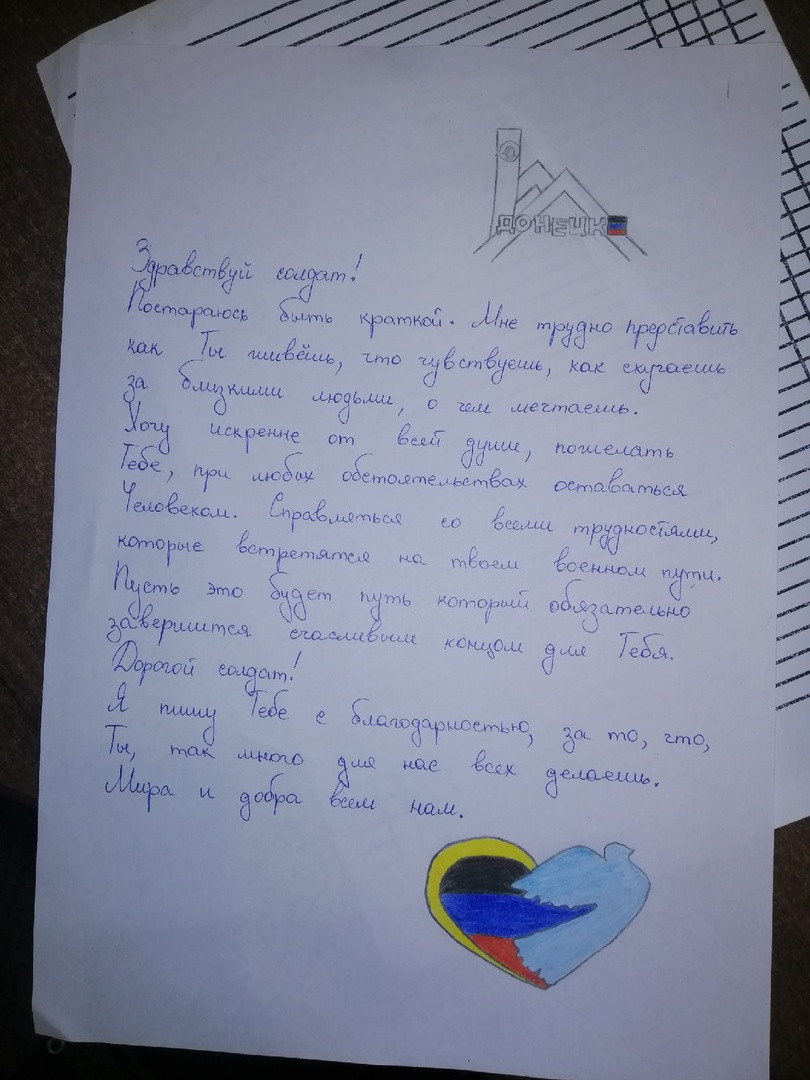 ДОНЕЦК
Здравствуй солдат!
Постараюсь быть краткой. Мне трудно представить
как Ты живёшь, что чувствуешь, как скучаешь
за близкими людьми, о чем мечтаешь.
Хочу искренне от всей души, пожелать
Тебе, при любых обстоятельствах оставаться
Человеком. Справляться со всеми трудностями,
которые встретятся на твоем военном пути.
Пусть это будет путь который обязательно
завершится счасливым концом для Тебя.
Дорогой солдат!
Я пишу Тебе с благодарностью, за то, что,
Ты, так много для нас всех делаешь.
Мира и добра всем нам.